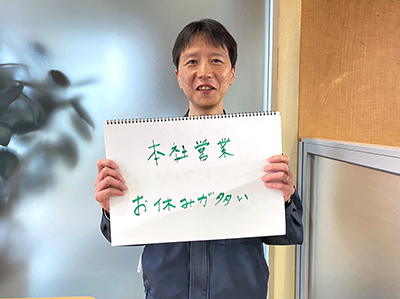 本社営業
お休みが多い